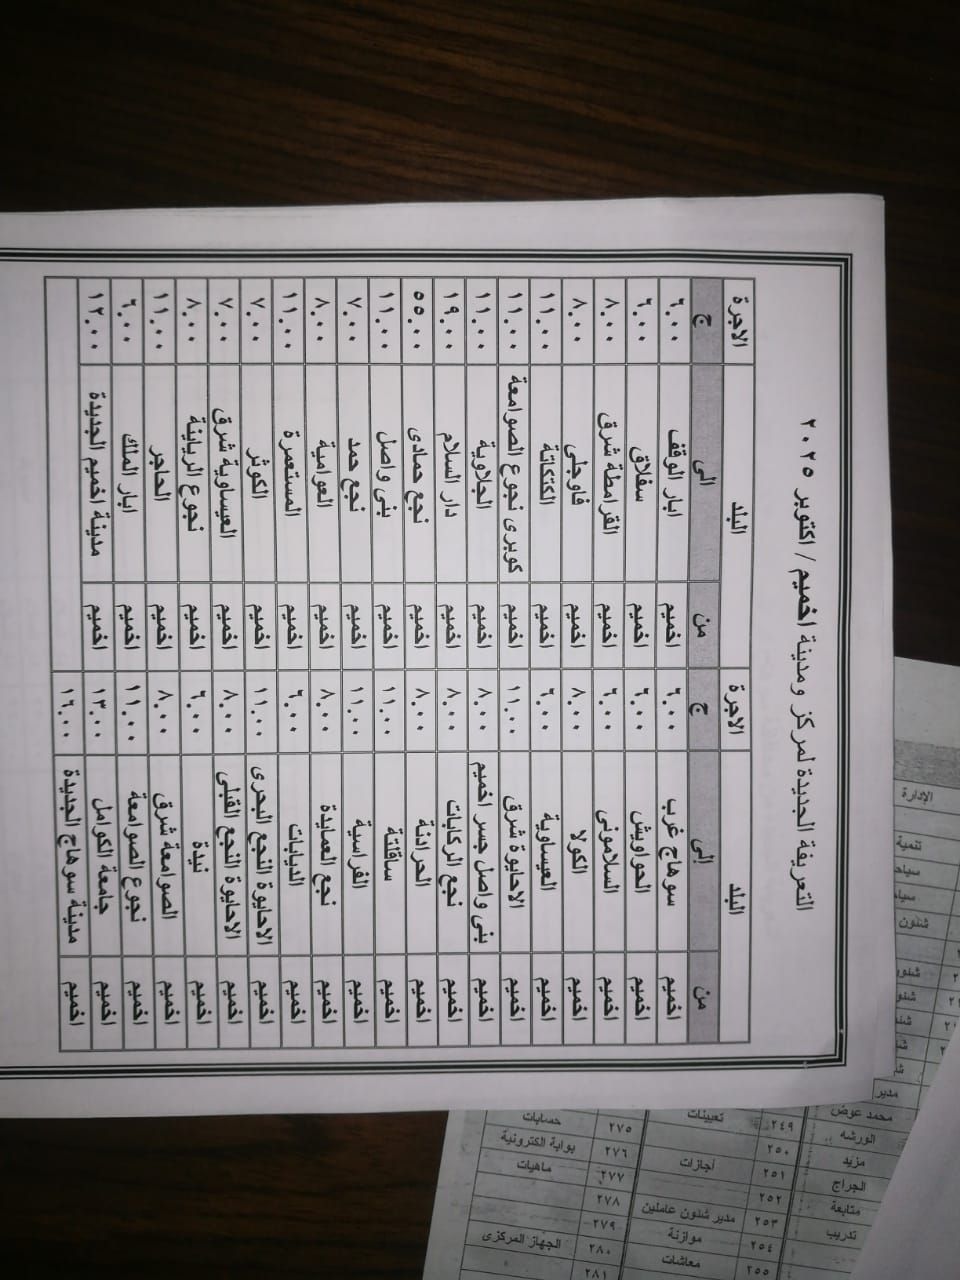 التعريفة الجديدة لمركز ومدينة اخميم / اكتوبر ٢٠٢٥
البلد الاجرة البلد الاجرة
من الى ج من الى ج
اخميم سوهاج غرب ٦.٠٠ اخميم ابار الوقف ٦.٠٠
اخميم الحواويش ٦.٠٠ اخميم سفلاق ٦.٠٠
اخميم السلامونى ٦.٠٠ اخميم القرامطة شرق ٨.٠٠
اخميم الكولا ٨.٠٠ اخميم فاوجلى ٨.٠٠
اخميم العيساوية ٦.٠٠ اخميم الكتكاتة ١١.٠٠
اخميم الاحايوة شرق ١١.٠٠ اخميم كوبرى نجوع الصوامعة ١١.٠٠
اخميم بنى واصل جسر اخميم ٨.٠٠ اخميم الجلاوية ١١.٠٠
اخميم نجع الركابات ٨.٠٠ اخميم دار السلام ١٩.٠٠
اخميم الحرادنة ٨.٠٠ اخميم نجع حمادى ٥٥.٠٠
اخميم ساقلتة ١١.٠٠ اخميم بنى واصل ١١.٠٠
اخميم الفراسية ١١.٠٠ اخميم نجع حمد ٧.٠٠
اخميم نجع العمايدة ٨.٠٠ اخميم العوامية ٨.٠٠
اخميم الديابات ٦.٠٠ اخميم المستعمرة ١١.٠٠
اخميم الاحايوة النجع البحرى ١١.٠٠ اخميم الكوثر ٧.٠٠
اخميم الاحايوة النجع القبلى ٨.٠٠ اخميم العيساوية شرق ٧.٠٠
اخميم نيدة ٦.٠٠ اخميم نجوع الرياينة ٨.٠٠
اخميم الصوامعة شرق ٨.٠٠ اخميم الحاجر ١١.٠٠
اخميم نجوع الصوامعة ١١.٠٠ اخميم ابار الملك ٦.٠٠
اخميم جامعة الكوامل ١٣.٠٠ اخميم مدينة اخميم الجديدة ١٢.٠٠
اخميم مدينة سوهاج الجديدة ١٦.٠٠
الإدارة
تنمية
شئون
مدير
محمد عوض
الورشه
مزيد
الجراج
متابعة
تدريب
تعيينات ٢٤٩
٢٥٠
أجازات ٢٥١
٢٥٢
مدير شئون عاملين ٢٥٣
موازنة ٢٥٤
معاشات ٢٥٥
حسابات ٢٧٥
بوابة الكترونية ٢٧٦
ماهيات ٢٧٧
٢٧٨
٢٧٩
الجهاز المركزى ٢٨٠
٢٨١